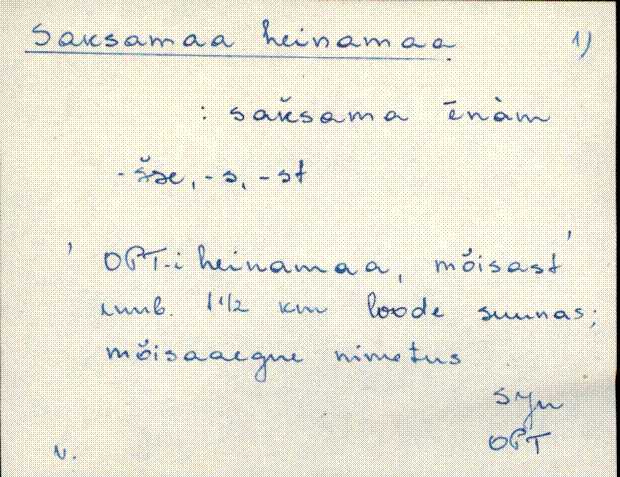 Saksamaa heinamaa. 1)
: saksama ēnàm
-s̆se, -s, -st
' OPT-i heinamaa, mõisast '
umb. 1 1/2 km loode suunas;
mõisaaegne nimetus
syn
OPT
v.